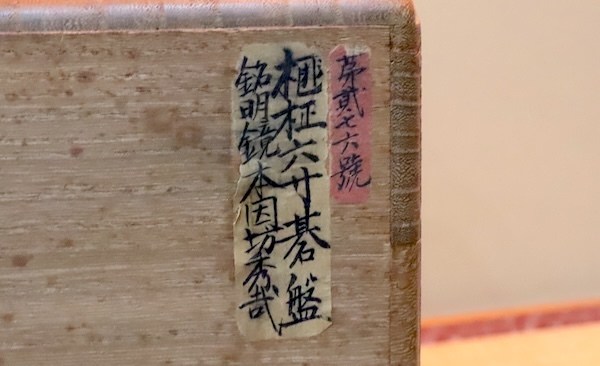 第貳七六號
榧柾六寸碁盤
銘明鏡本因坊秀哉